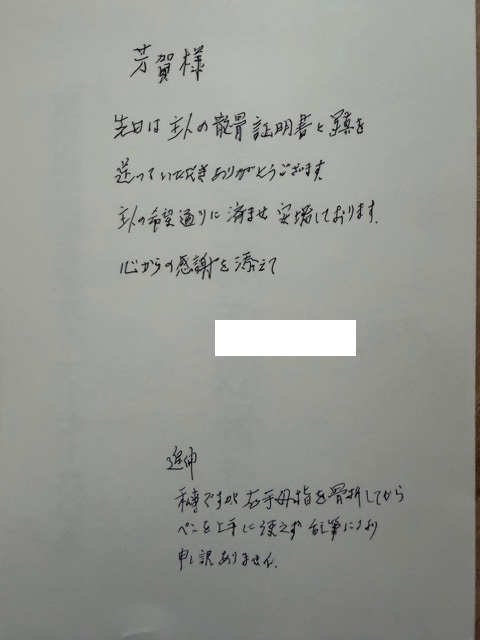 芳賀様
先日は主人の散骨証明書と写真を
送っていただきありがとうございます.
主人の希望通りに済ませ安堵しております.
心からの感謝を添えて
追伸
私事ですが右手母指を骨折してから
ペンを上手に使えず乱筆になり
申し訳ありません.